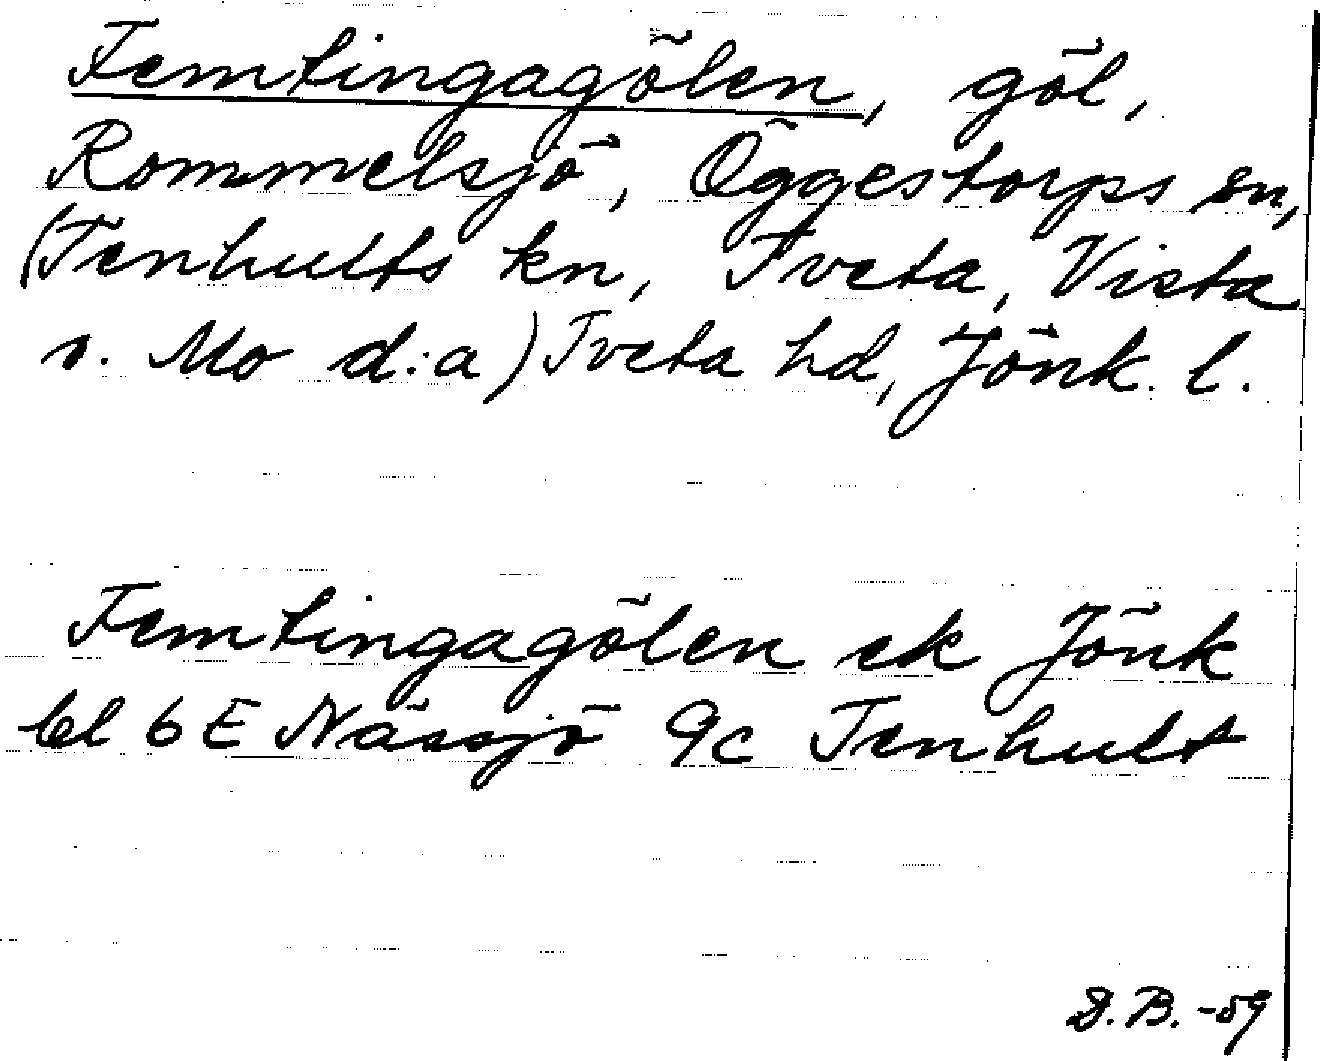 Femtingagölen, göl,
Rommelsjö, Öggestorps sn,
(Tenhults kn, Tveta, Vista
o. Mo d:a) Tveta hd, Jönk. l.
Femtingagölen ek Jönk
bl 6E Nässjö 9c Tenhult
D.B. -59